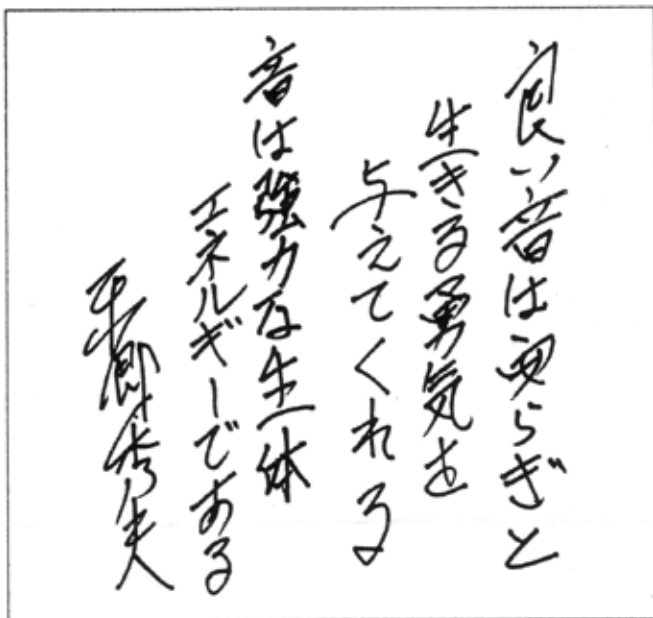 良い音は安らぎと
生きる勇気を
与えてくれる
音は強力な生体
エネルギーである
秀夫